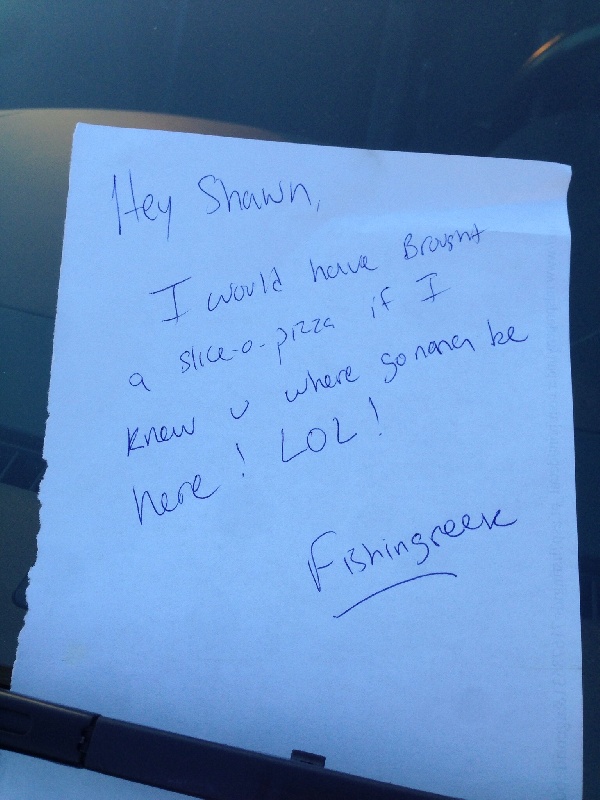 Hey Shawn,
I would have Brought
a slice-o-pizza if I
knew u where gonna be
here! LOL!
Fishingreek